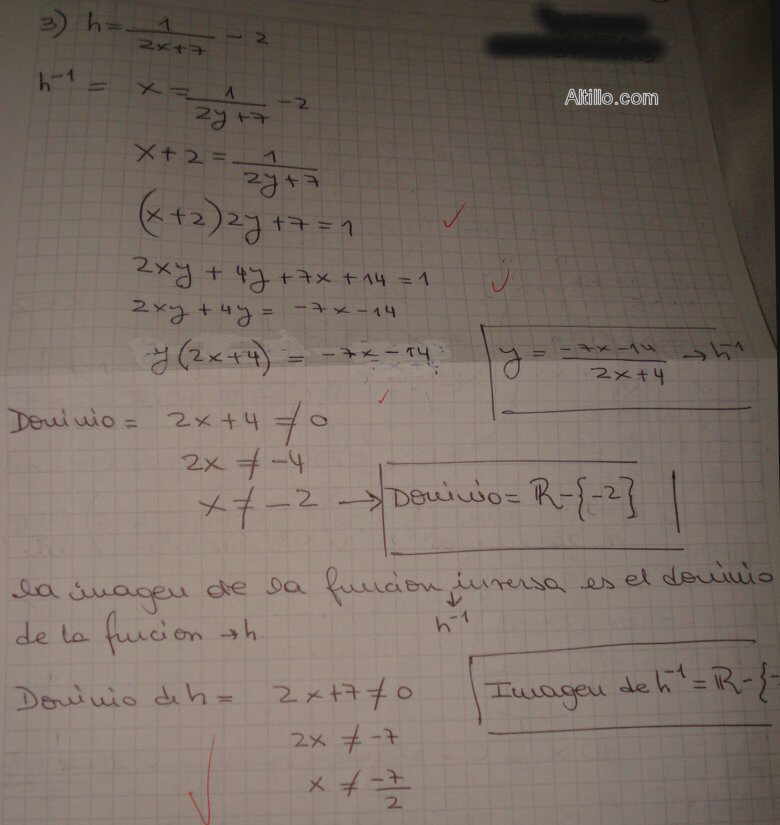 3) h = 1/(2x+7) - 2
Altillo.com
h⁻¹ = x = 1/(2y+7) - 2
x + 2 = 1/(2y+7)
(x+2) 2y + 7 = 1
2xy + 4y + 7x + 14 = 1
2xy + 4y = -7x - 14
y(2x+4) = -7x - 14
y = (-7x-14)/(2x+4) → h⁻¹
Dominio = 2x + 4 ≠ 0
2x ≠ -4
x ≠ -2 → Dominio = R - {-2}
la imagen de la funcion inversa es el dominio
h⁻¹
de la funcion → h
Dominio de h = 2x + 7 ≠ 0
Imagen de h⁻¹ = R - {-
2x ≠ -7
x ≠ -7/2